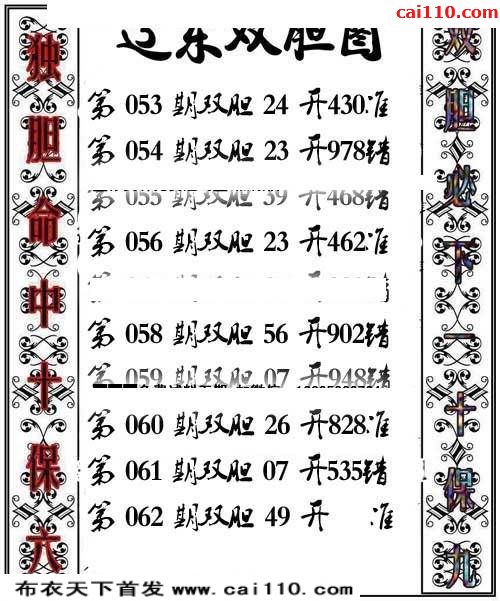 cai110.com
东双胆图
独胆命中十保六
第 053 期双胆 24 开430准
第 054 期双胆 23 开978错
第 055 期双胆 39 开468错
第 056 期双胆 23 开462准
第 058 期双胆 56 开902错
第 059 期双胆 07 开948错
第 060 期双胆 26 开828准
第 061 期双胆 07 开535错
第 062 期双胆 49 开 准
双胆必下一十保九
布衣天下首发 www.cai110.com